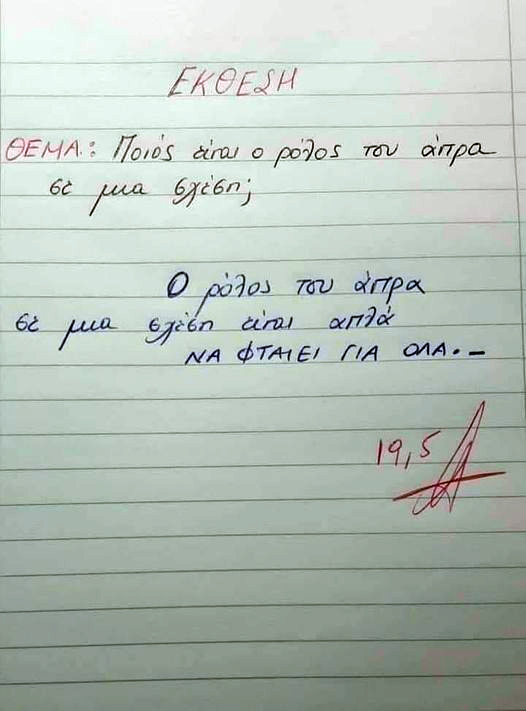 ΕΚΘΕΣΗ
ΘΕΜΑ: Ποιός είναι ο ρόλος του άντρα
σέ μια σχέση;
Ο ρόλος του άντρα
σέ μια σχέση είναι απλά
ΝΑ ΦΤΑΙΕΙ ΓΙΑ ΟΛΑ.–
19,5